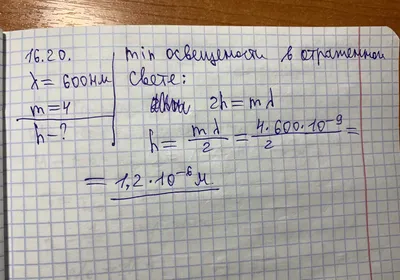 16.20.
λ = 600нм
m = 4
h - ?
min освещености в отраженной
свете:
2h = mλ
h = mλ/2 = 4·600·10⁻⁹/2 =
= 1,2·10⁻⁶ м.